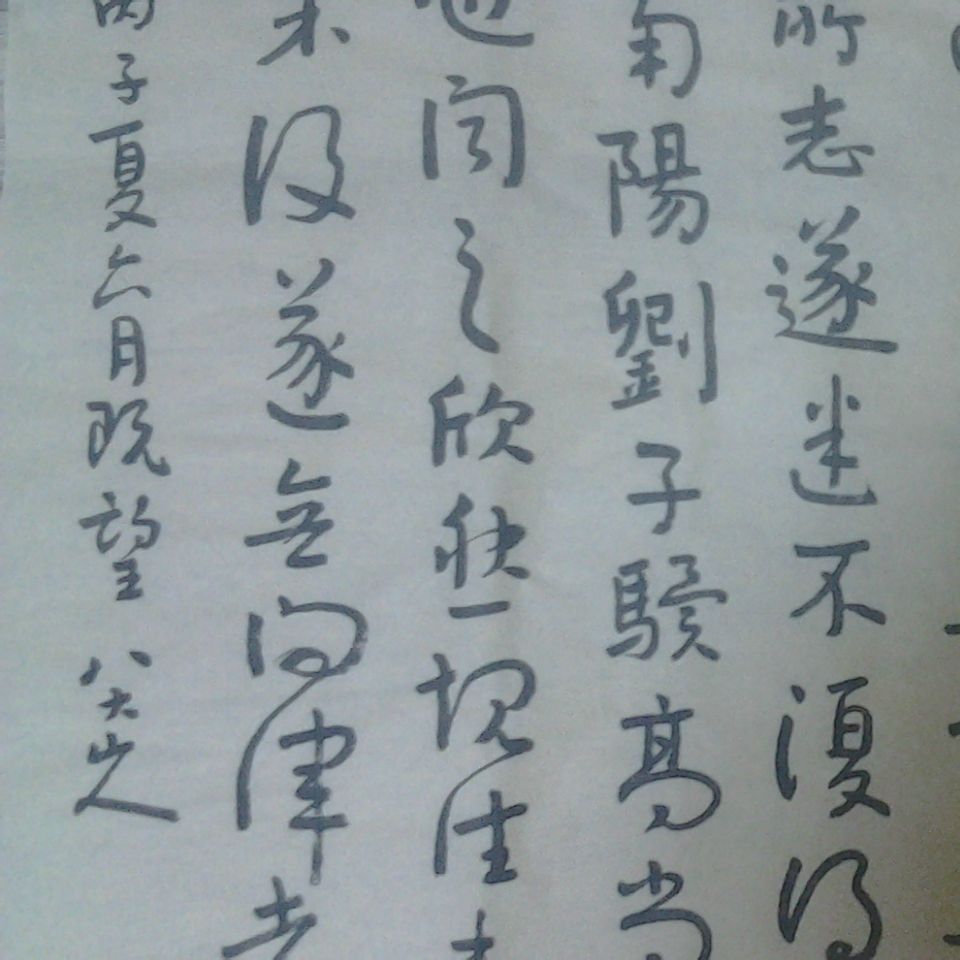 所志遂迷不復得
南陽劉子驥高尚
也聞之欣然規往
後遂無問津者
丙子夏六月既望 八大山人